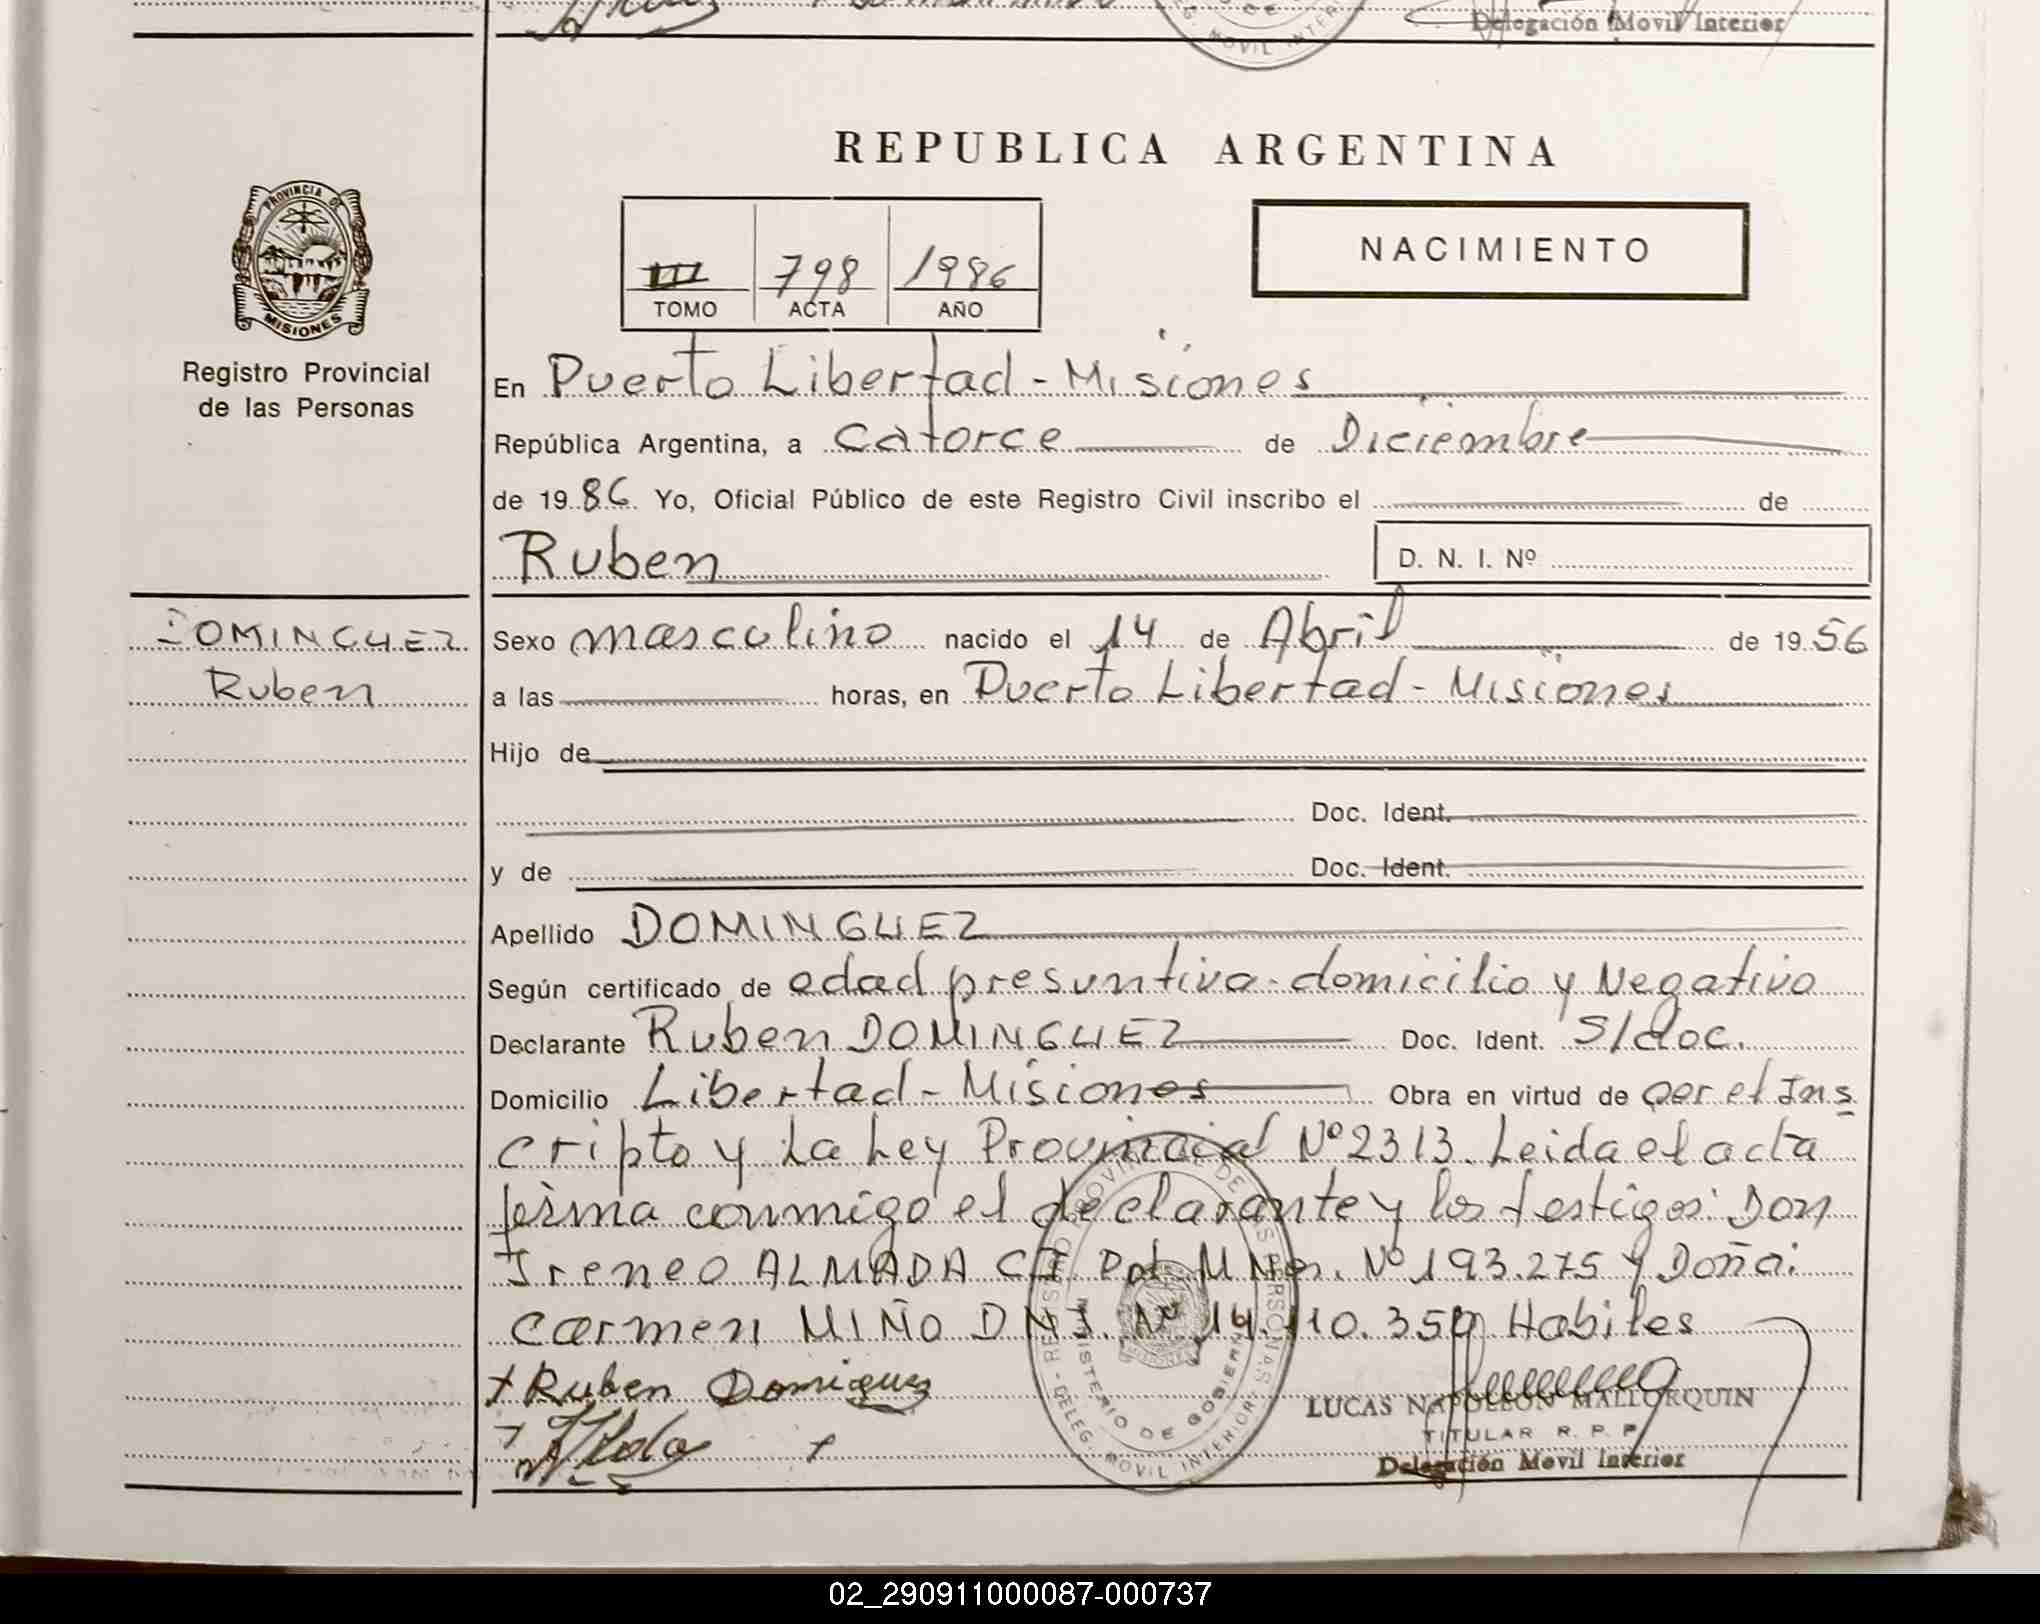 Delegación Movil Interior
MOVIL INTER
REPUBLICA ARGENTINA
PROVINCIA DE
MISIONES
Registro Provincial
de las Personas
III 798 1986
TOMO ACTA AÑO
NACIMIENTO
En Puerto Libertad - Misiones
República Argentina, a catorce de Diciembre
de 1986 Yo, Oficial Público de este Registro Civil inscribo el de
Ruben
D. N. I. Nº
DOMINGUEZ
Ruben
Sexo masculino nacido el 14 de Abril de 1956
a las horas, en Puerto Libertad - Misiones
Hijo de
Doc. Ident.
y de Doc. Ident.
Apellido DOMINGUEZ
Según certificado de edad presuntiva - domicilio y Negativo
Declarante Ruben DOMINGUEZ Doc. Ident. S/doc.
Domicilio Libertad - Misiones Obra en virtud de ser el Ins
cripto y La Ley Provincial Nº 2313. Leida el acta
firma conmigo el declarante y los testigos: Don
Ireneo ALMADA CI. Pol. Mnes. Nº 193.275 y Doña:
Carmen MIÑO DNI. Nº 14.110.359 Habiles
+ Ruben Domiguez
REGISTRO PROVINCIAL DE LAS PERSONAS - DELEG. MOVIL INTERIOR
MINISTERIO DE GOBIERNO
MISIONES
LUCAS NAPOLEON MALLORQUIN
TITULAR R. P. P.
Delegación Movil Interior
02_290911000087-000737